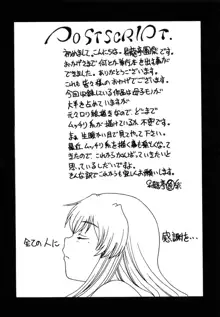 POSTSCRIPT.
初めまして、こんにちは。団です。
おかげさまで何とか単行本を出す事が
できました。ありがとうございます。
これも皆々様のおかげでございます。
今回収録している作品は母モノが
大半を占めていますが
元々ロリ絵描きなので、どこまで
ムッチリ系が描けているか不安です。
まぁ、生暖かい目で見てやって下さい。
最近ムッチリ系を描く事も楽しくなって
きたので、これからもがんばっていきたいと
思っているしだいですよ。
そんな訳でこれからも宜しくお願いします。
全ての人に
感謝を…